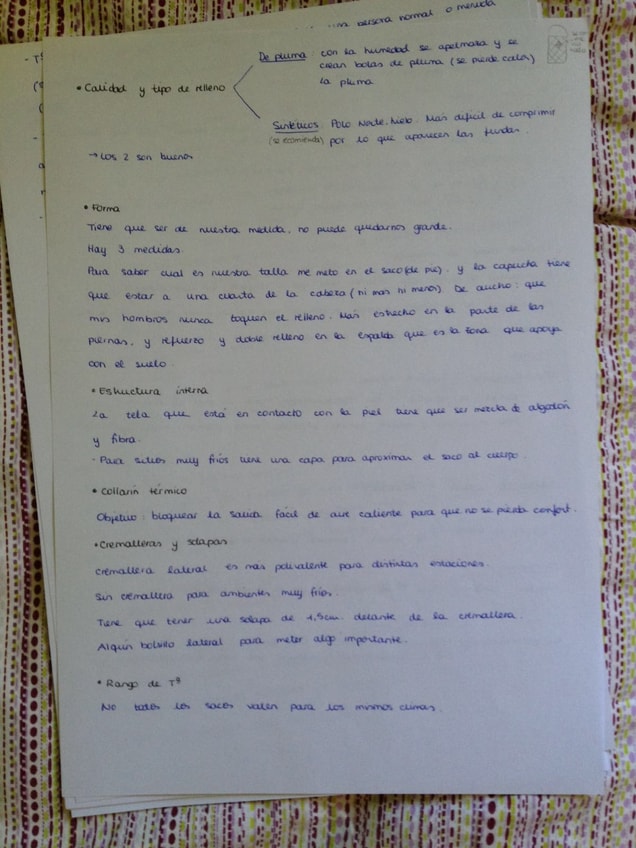 persona normal o menuda
De pluma: con la humedad se apelmaza y se
crean bolas de pluma (se pierde calor)
la pluma
• Calidad y tipo de relleno
Sintéticos: Polo Norte. Nielo. Más difícil de comprimir
(se recomienda) por lo que aparecen las fundas.
→ Los 2 son buenos
• Forma
Tiene que ser de nuestra medida, no puede quedarnos grande.
Hay 3 medidas.
Para saber cual es nuestra talla me meto en el saco (de pie). y la capucha tiene
que estar a una cuarta de la cabeza (ni mas ni menos) De ancho: que
mis hombros nunca toquen el relleno. Más estrecho en la parte de las
piernas, y refuerzo y doble relleno en la espalda que es la zona que apoya
con el suelo.
• Estructura interna
La tela que está en contacto con la piel tiene que ser mezcla de algodón
y fibra.
· Para sitios muy fríos tiene una capa para aproximar el saco al cuerpo.
• Collarín térmico
Objetivo: bloquear la salida fácil de aire caliente para que no se pierda confort.
• Cremalleras y solapas.
Cremallera lateral es mas polivalente para distintas estaciones.
Sin cremallera para ambientes muy fríos.
Tiene que tener una solapa de 1,5cm. delante de la cremallera.
Algún bolsillo lateral para meter algo importante.
• Rango de Tª
No todos los sacos valen para los mismos climas.